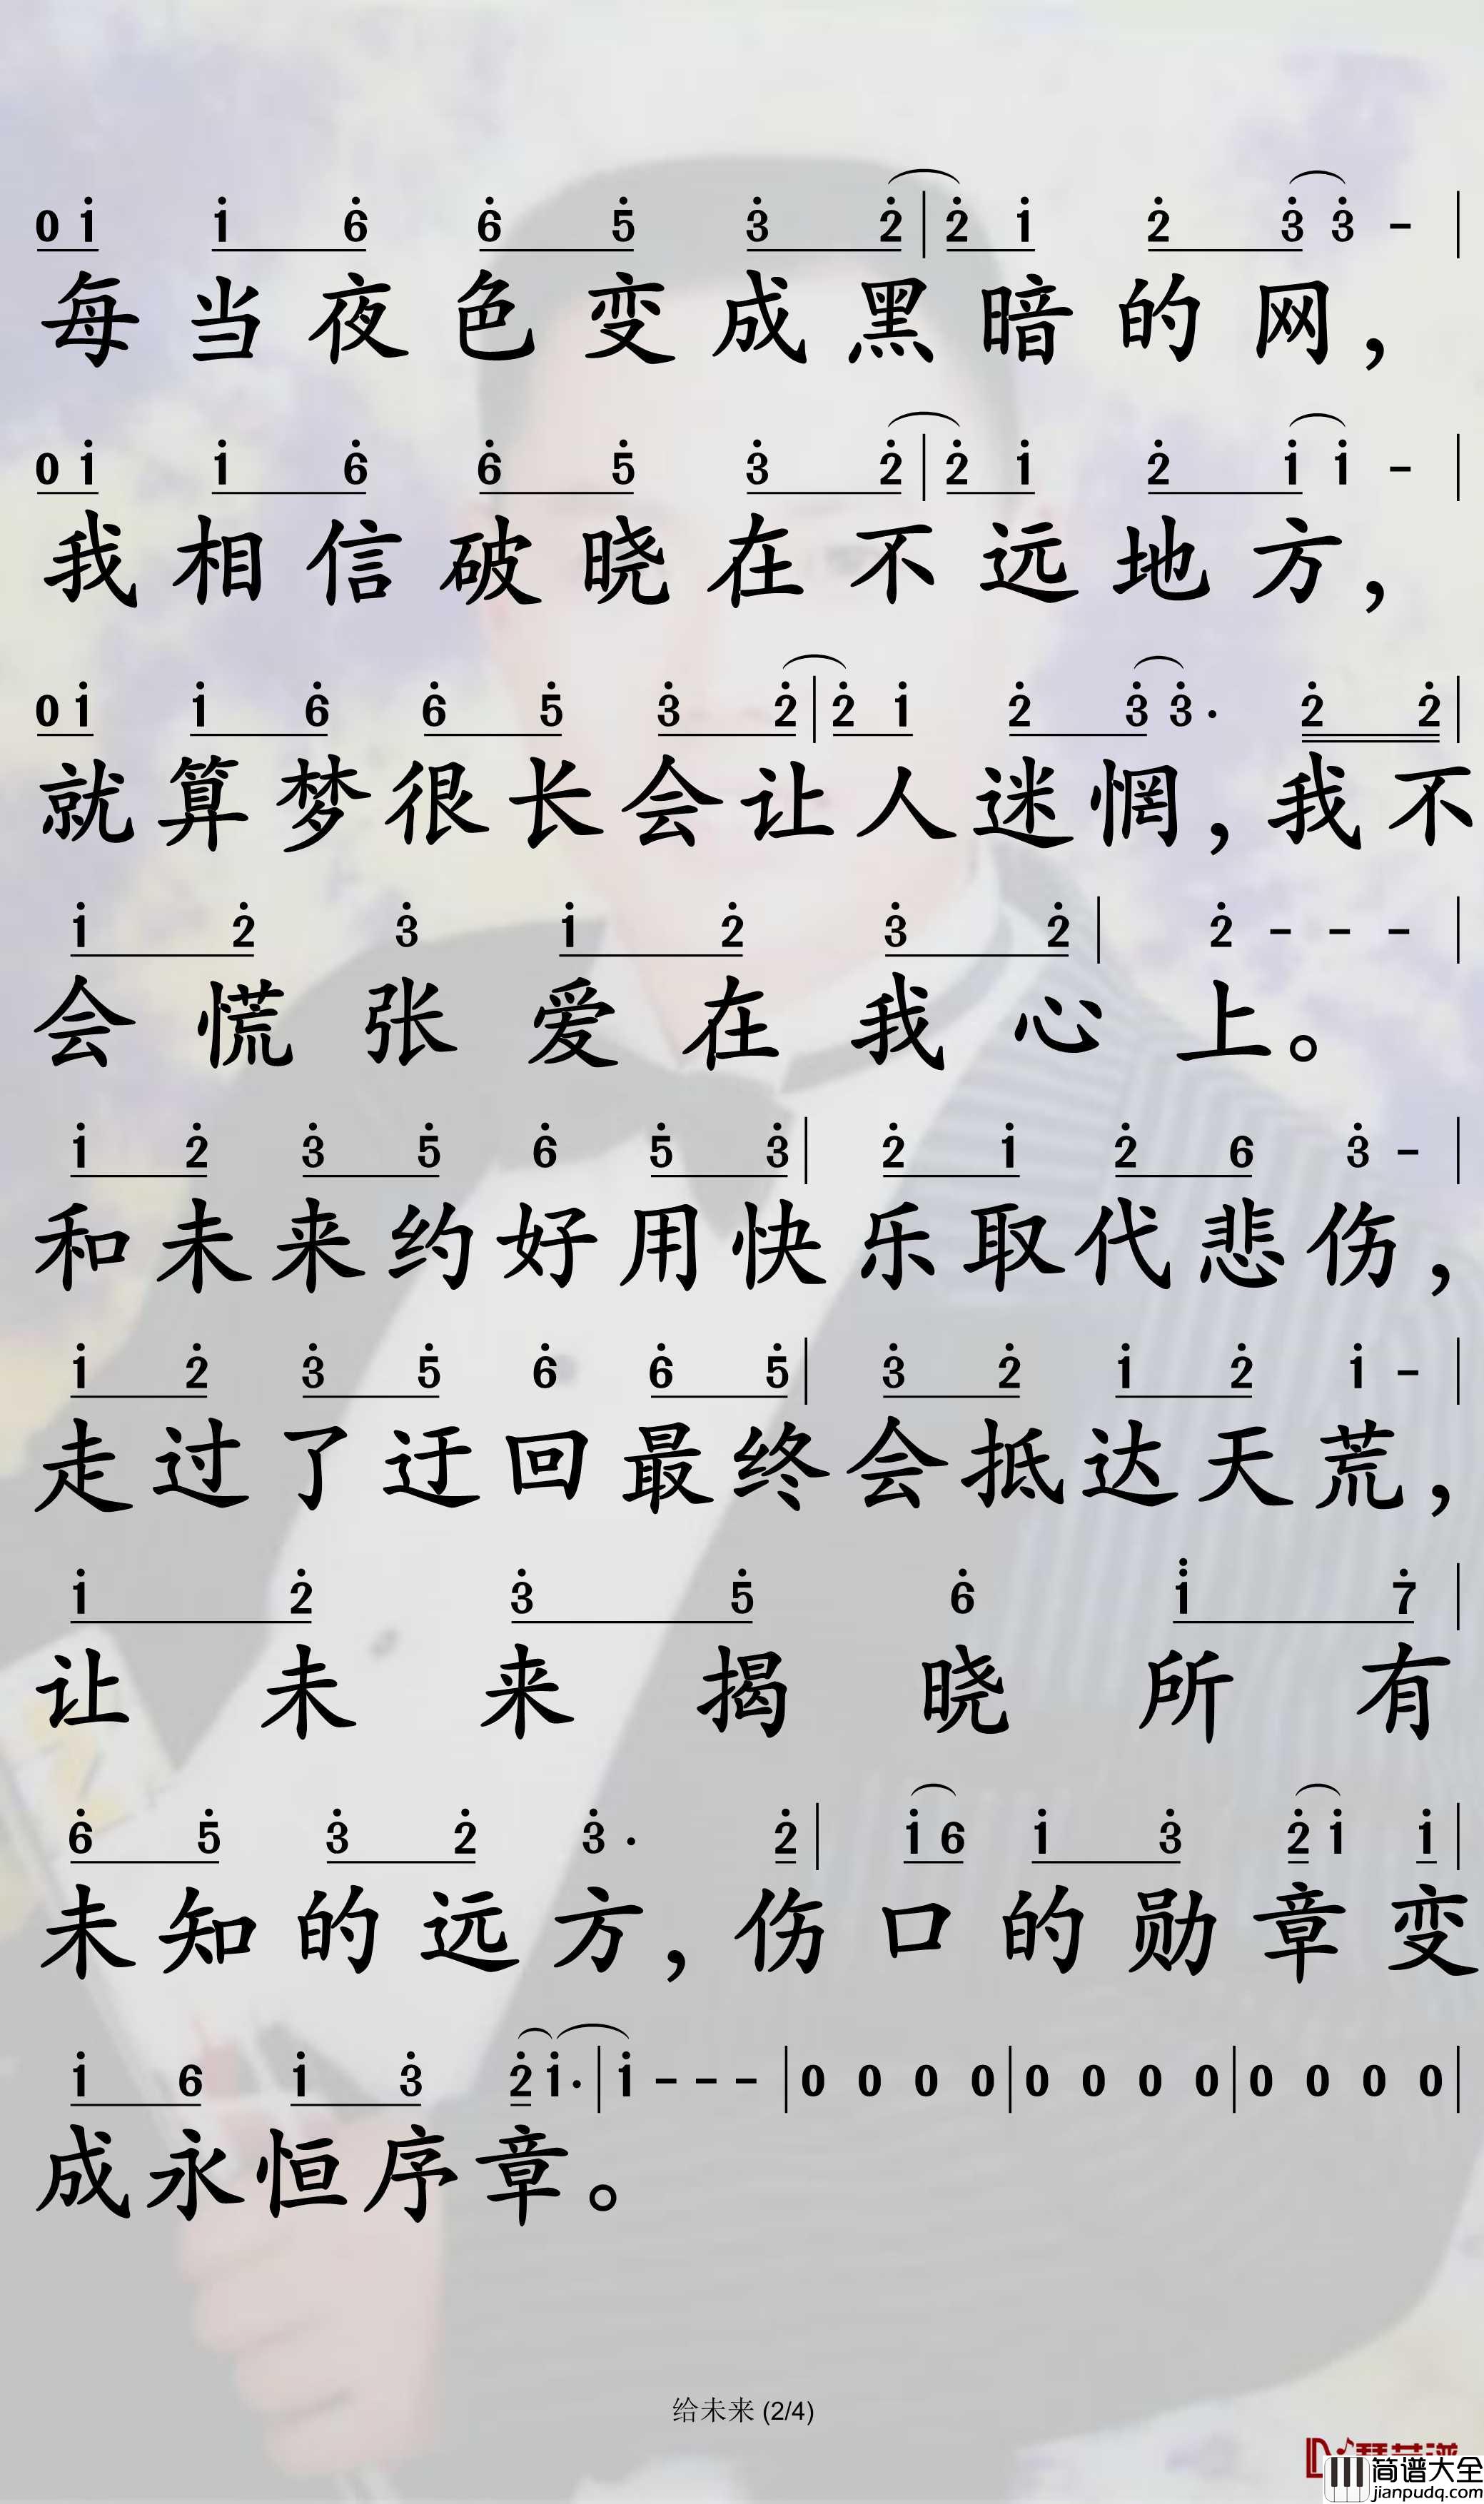 0 1 1 6 6 5 3 2 | 2 1 2 3 3 - |
每当夜色变成黑暗的网，
0 1 1 6 6 5 3 2 | 2 1 2 1 1 - |
我相信破晓在不远地方，
0 1 1 6 6 5 3 2 | 2 1 2 3 3 · 2 2 |
就算梦很长会让人迷惘，我不
1 2 3 1 2 3 2 | 2 - - - |
会慌张爱在我心上。
1 2 3 5 6 5 3 | 2 1 2 6 3 - |
和未来约好用快乐取代悲伤，
1 2 3 5 6 6 5 | 3 2 1 2 1 - |
走过了迂回最终会抵达天荒，
1 2 3 5 6 1 7 |
让未来揭晓所有
6 5 3 2 3 · 2 | 1 6 1 3 2 1 1 |
未知的远方，伤口的勋章变
1 6 1 3 2 1 · | 1 - - - | 0 0 0 0 | 0 0 0 0 | 0 0 0 0 |
成永恒序章。
给未来 (2/4)
简谱大全
jianpudq.com